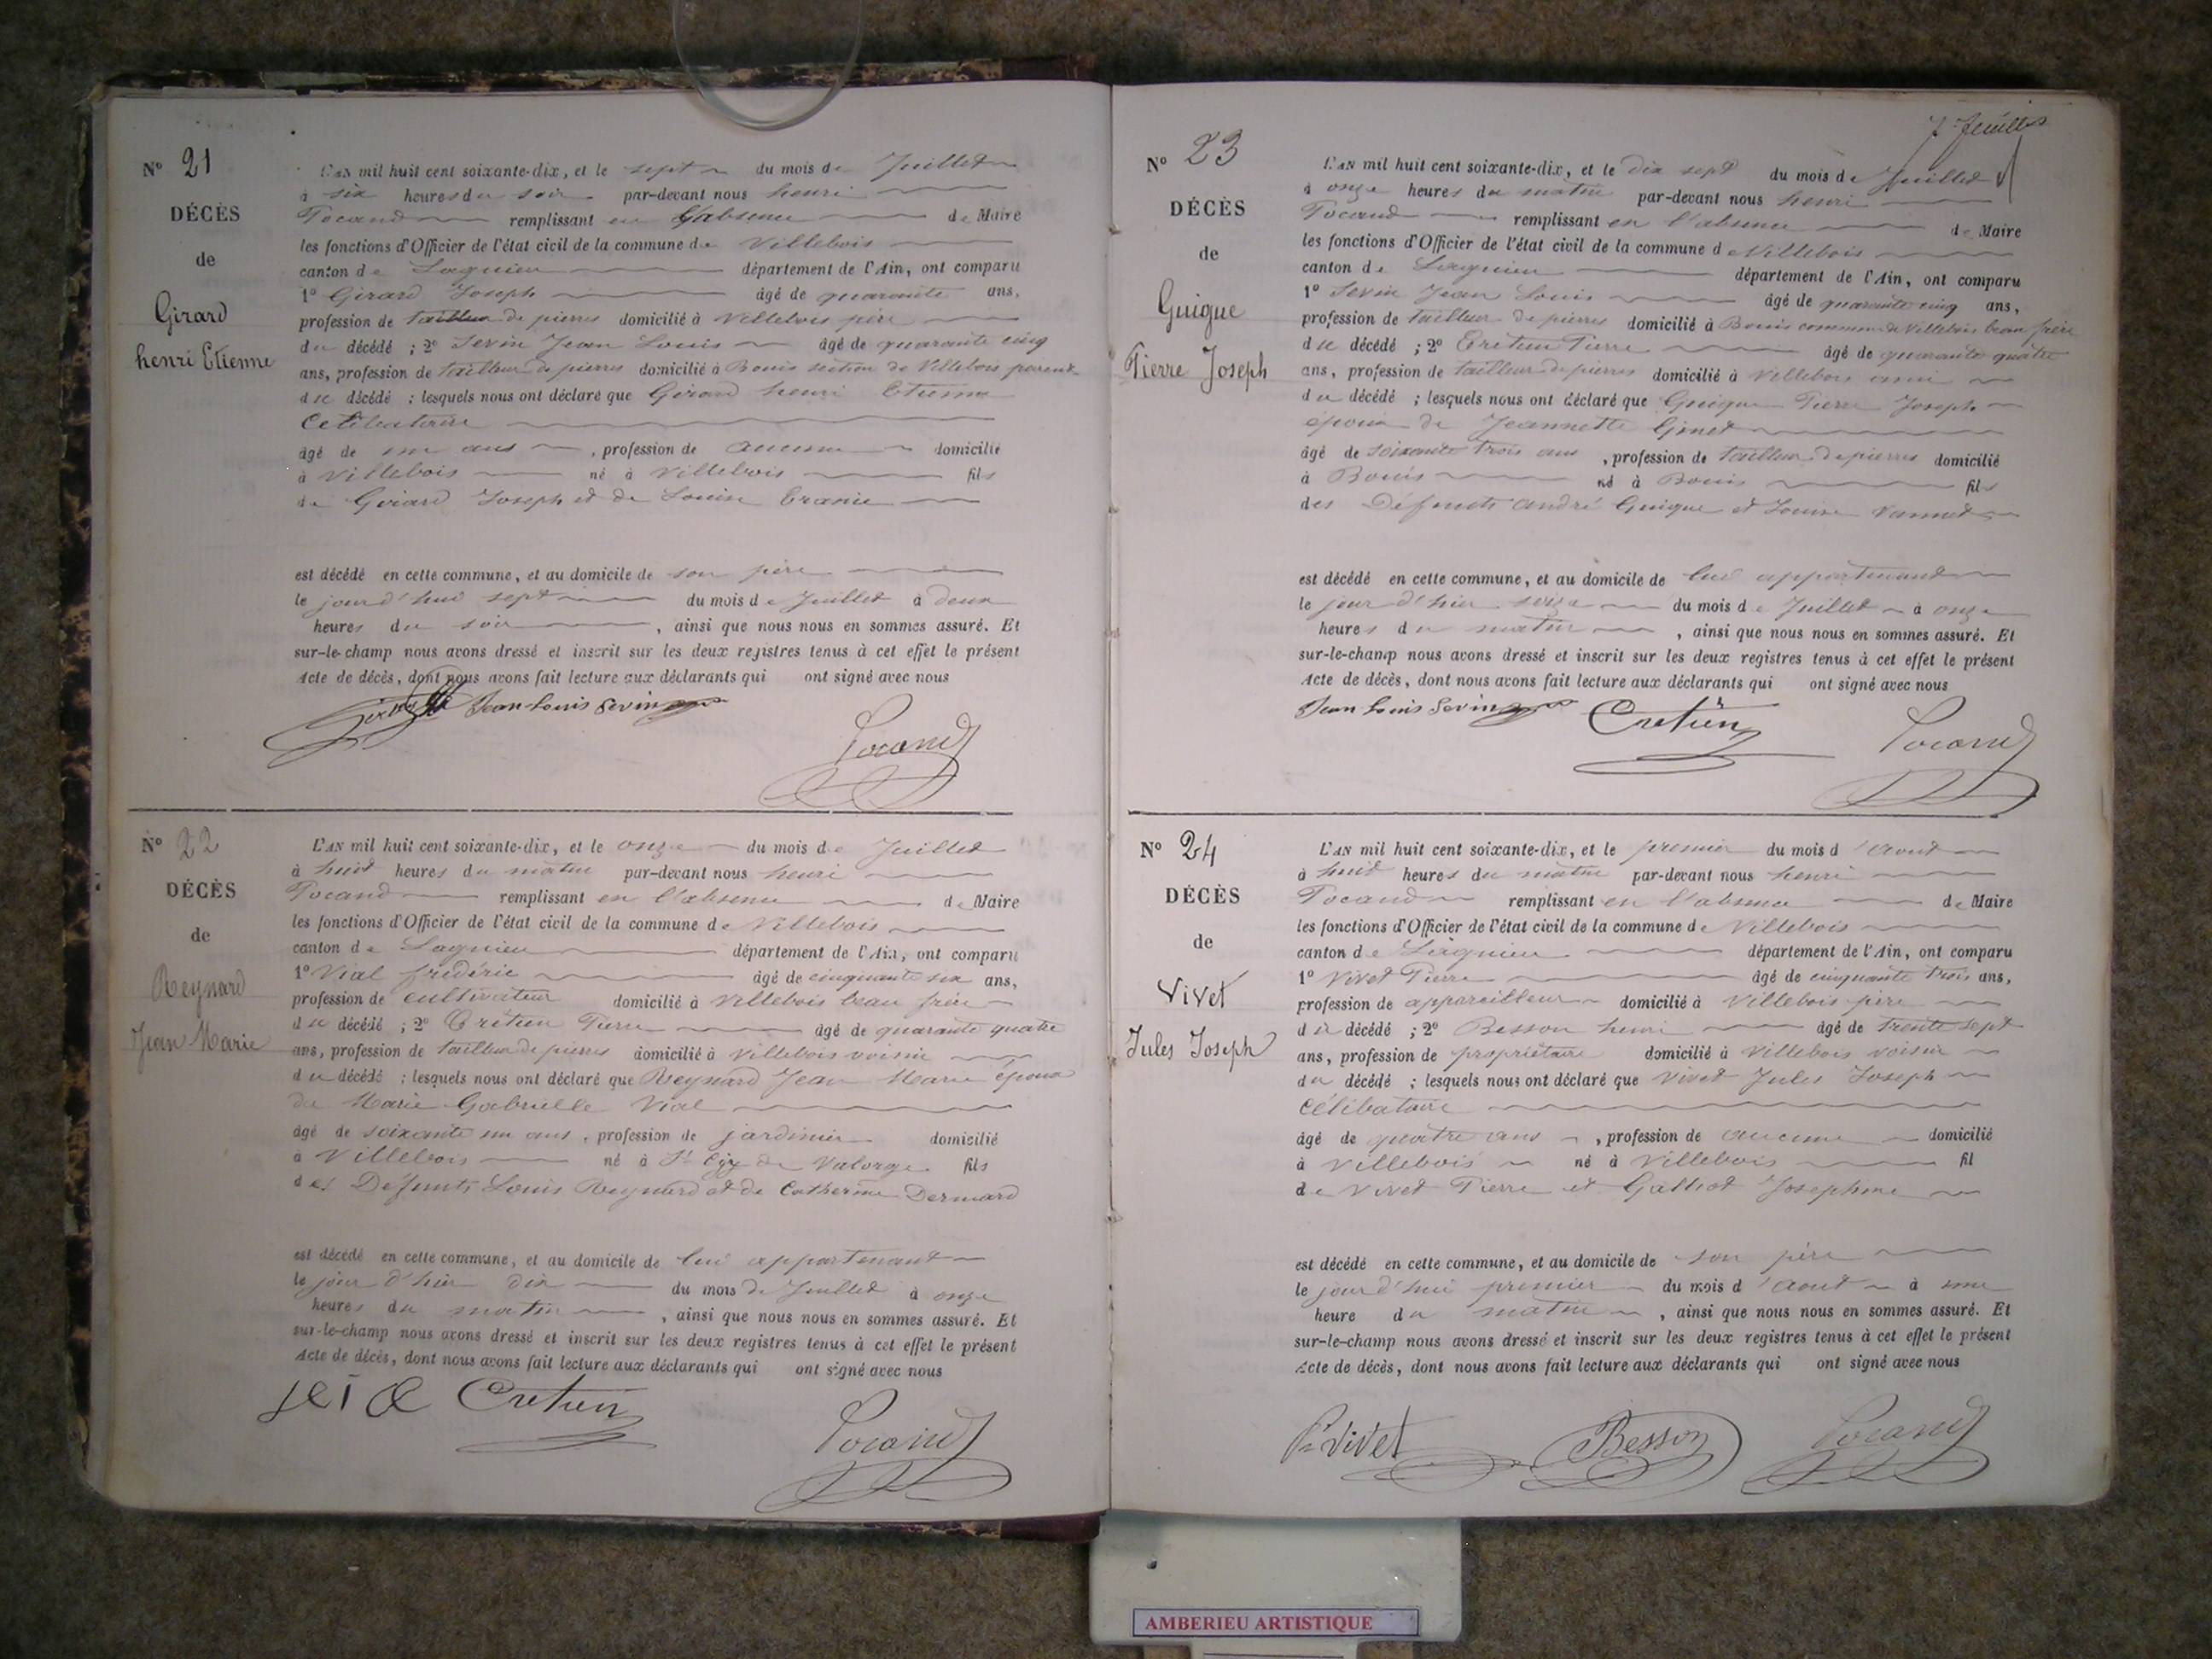 Nº 21
DÉCÈS
de
Girard
henri Etienne
L'AN mil huit cent soixante-dix, et le sept du mois de Juillet
à six heures du soir par-devant nous henri
Pocand remplissant en l'absence de Maire
les fonctions d'Officier de l'état civil de la commune de Villebois
canton de Lagnieu département de l'Ain, ont comparu
1º Girard Joseph âgé de quarante ans,
profession de tailleur de pierres domicilié à Villebois père
du décédé ; 2º Sevin Jean Louis âgé de quarante cinq
ans, profession de tailleur de pierres domicilié à Bouis section de Villebois parent
du décédé ; lesquels nous ont déclaré que Girard henri Etienne
Célibataire
âgé de un ans , profession de aucune domicilié
à Villebois né à Villebois fils
de Girard Joseph et de Louise
est décédé en cette commune, et au domicile de son père
le jour d'hui sept du mois de Juillet à deux
heures du soir , ainsi que nous nous en sommes assuré. Et
sur-le-champ nous avons dressé et inscrit sur les deux registres tenus à cet effet le présent
Acte de décès, dont nous avons fait lecture aux déclarants qui ont signé avec nous
Jean Louis Sevin
Pocand
Nº 22
DÉCÈS
de
Reynard
Jean Marie
L'AN mil huit cent soixante-dix, et le onze du mois de Juillet
à huit heures du matin par-devant nous henri
Pocand remplissant en l'absence de Maire
les fonctions d'Officier de l'état civil de la commune de Villebois
canton de Lagnieu département de l'Ain, ont comparu
1º Vial frédéric âgé de cinquante six ans,
profession de cultivateur domicilié à Villebois beau frère
du décédé ; 2º Crétien Pierre âgé de quarante quatre
ans, profession de tailleur de pierres domicilié à Villebois voisin
du décédé ; lesquels nous ont déclaré que Reynard Jean Marie époux
de Marie Gabrielle Vial
âgé de soixante un ans , profession de jardinier domicilié
à Villebois né à St de Valorge fils
des Defunts Louis Reynard et de Catherine Dermard
est décédé en cette commune, et au domicile de lui appartenant
le jour d'hier dix du mois de Juillet à onze
heures du matin , ainsi que nous nous en sommes assuré. Et
sur-le-champ nous avons dressé et inscrit sur les deux registres tenus à cet effet le présent
Acte de décès, dont nous avons fait lecture aux déclarants qui ont signé avec nous
Cretien
Pocand
7e feuillet
Nº 23
DÉCÈS
de
Guigue
Pierre Joseph
L'AN mil huit cent soixante-dix, et le dix sept du mois de Juillet
à onze heures du matin par-devant nous henri
Pocand remplissant en l'absence de Maire
les fonctions d'Officier de l'état civil de la commune de Villebois
canton de Lagnieu département de l'Ain, ont comparu
1º Sevin Jean Louis âgé de quarante cinq ans,
profession de tailleur de pierres domicilié à Bouis commune de Villebois beau frère
du décédé ; 2º Crétien Pierre âgé de quarante quatre
ans, profession de tailleur de pierres domicilié à Villebois ami
du décédé ; lesquels nous ont déclaré que Guigue Pierre Joseph
époux de Jeannette Ginet
âgé de soixante trois ans , profession de tailleur de pierres domicilié
à Bouis né à Bouis fils
des Défunts André Guigue et Louise Vannet
est décédé en cette commune, et au domicile de lui appartenant
le jour d'hier seize du mois de Juillet à onze
heures du matin , ainsi que nous nous en sommes assuré. Et
sur-le-champ nous avons dressé et inscrit sur les deux registres tenus à cet effet le présent
Acte de décès, dont nous avons fait lecture aux déclarants qui ont signé avec nous
Jean Louis Sevin Cretien
Pocand
Nº 24
DÉCÈS
de
Vivet
Jules Joseph
L'AN mil huit cent soixante-dix, et le premier du mois d'Aout
à huit heures du matin par-devant nous henri
Pocand remplissant en l'absence de Maire
les fonctions d'Officier de l'état civil de la commune de Villebois
canton de Lagnieu département de l'Ain, ont comparu
1º Vivet Pierre âgé de cinquante trois ans,
profession de appareilleur domicilié à Villebois père
du décédé ; 2º Besson henri âgé de trente sept
ans, profession de propriétaire domicilié à Villebois voisin
du décédé ; lesquels nous ont déclaré que Vivet Jules Joseph
Célibataire
âgé de quatre ans , profession de aucune domicilié
à Villebois né à Villebois fil
de Vivet Pierre et Josephine
est décédé en cette commune, et au domicile de son père
le jour d'hui premier du mois d'Aout à une
heure du matin , ainsi que nous nous en sommes assuré. Et
sur-le-champ nous avons dressé et inscrit sur les deux registres tenus à cet effet le présent
Acte de décès, dont nous avons fait lecture aux déclarants qui ont signé avec nous
Pre Vivet Besson Pocand
AMBERIEU ARTISTIQUE